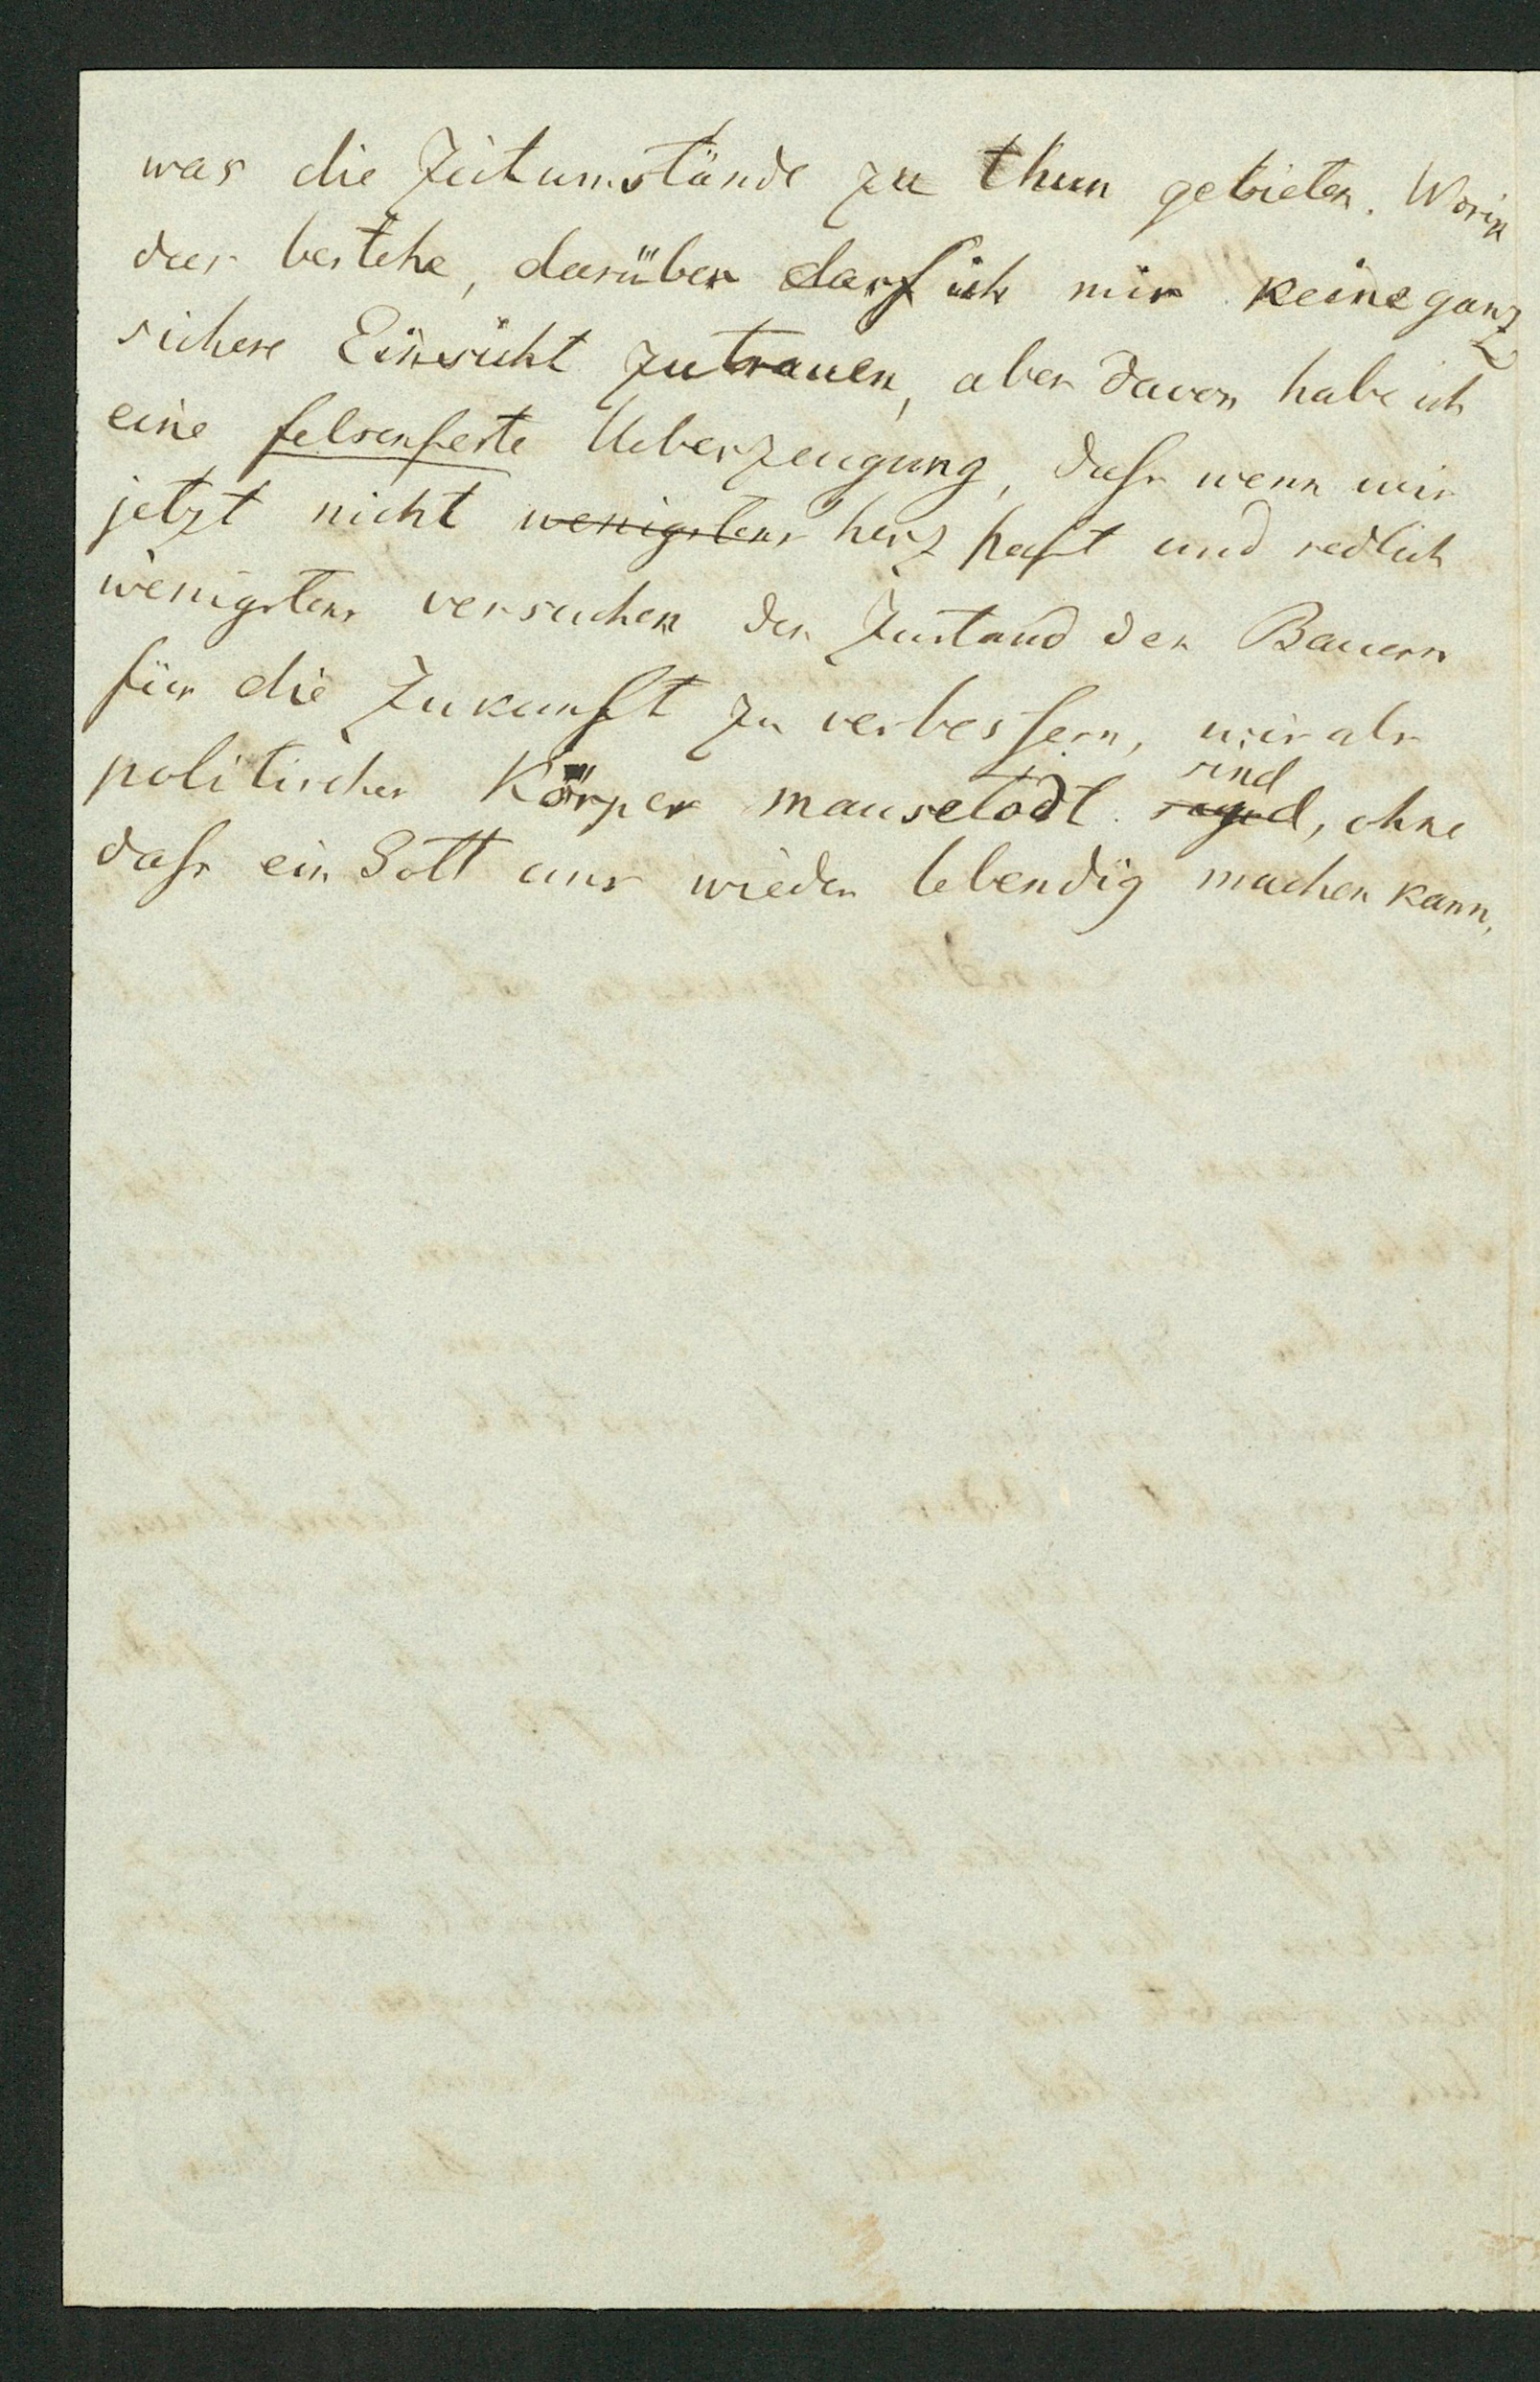 was die Zeitumstände zu thun gebieten. Worin
das bestehe, darüber darf ich mir keine ganz
sichere Einsicht zutrauen, aber davon habe ich
eine felsenfeste Ueberzeugung, dass wenn wir
jetzt nicht wenigstens herzhaft und redlich
wenigstens versuchen den Zustand der Bauern
für die Zukunft zu verbessern, wir als
politischer Körper mausetodt sind, ohne
dass ein Gott uns wieder lebendig machen kann,